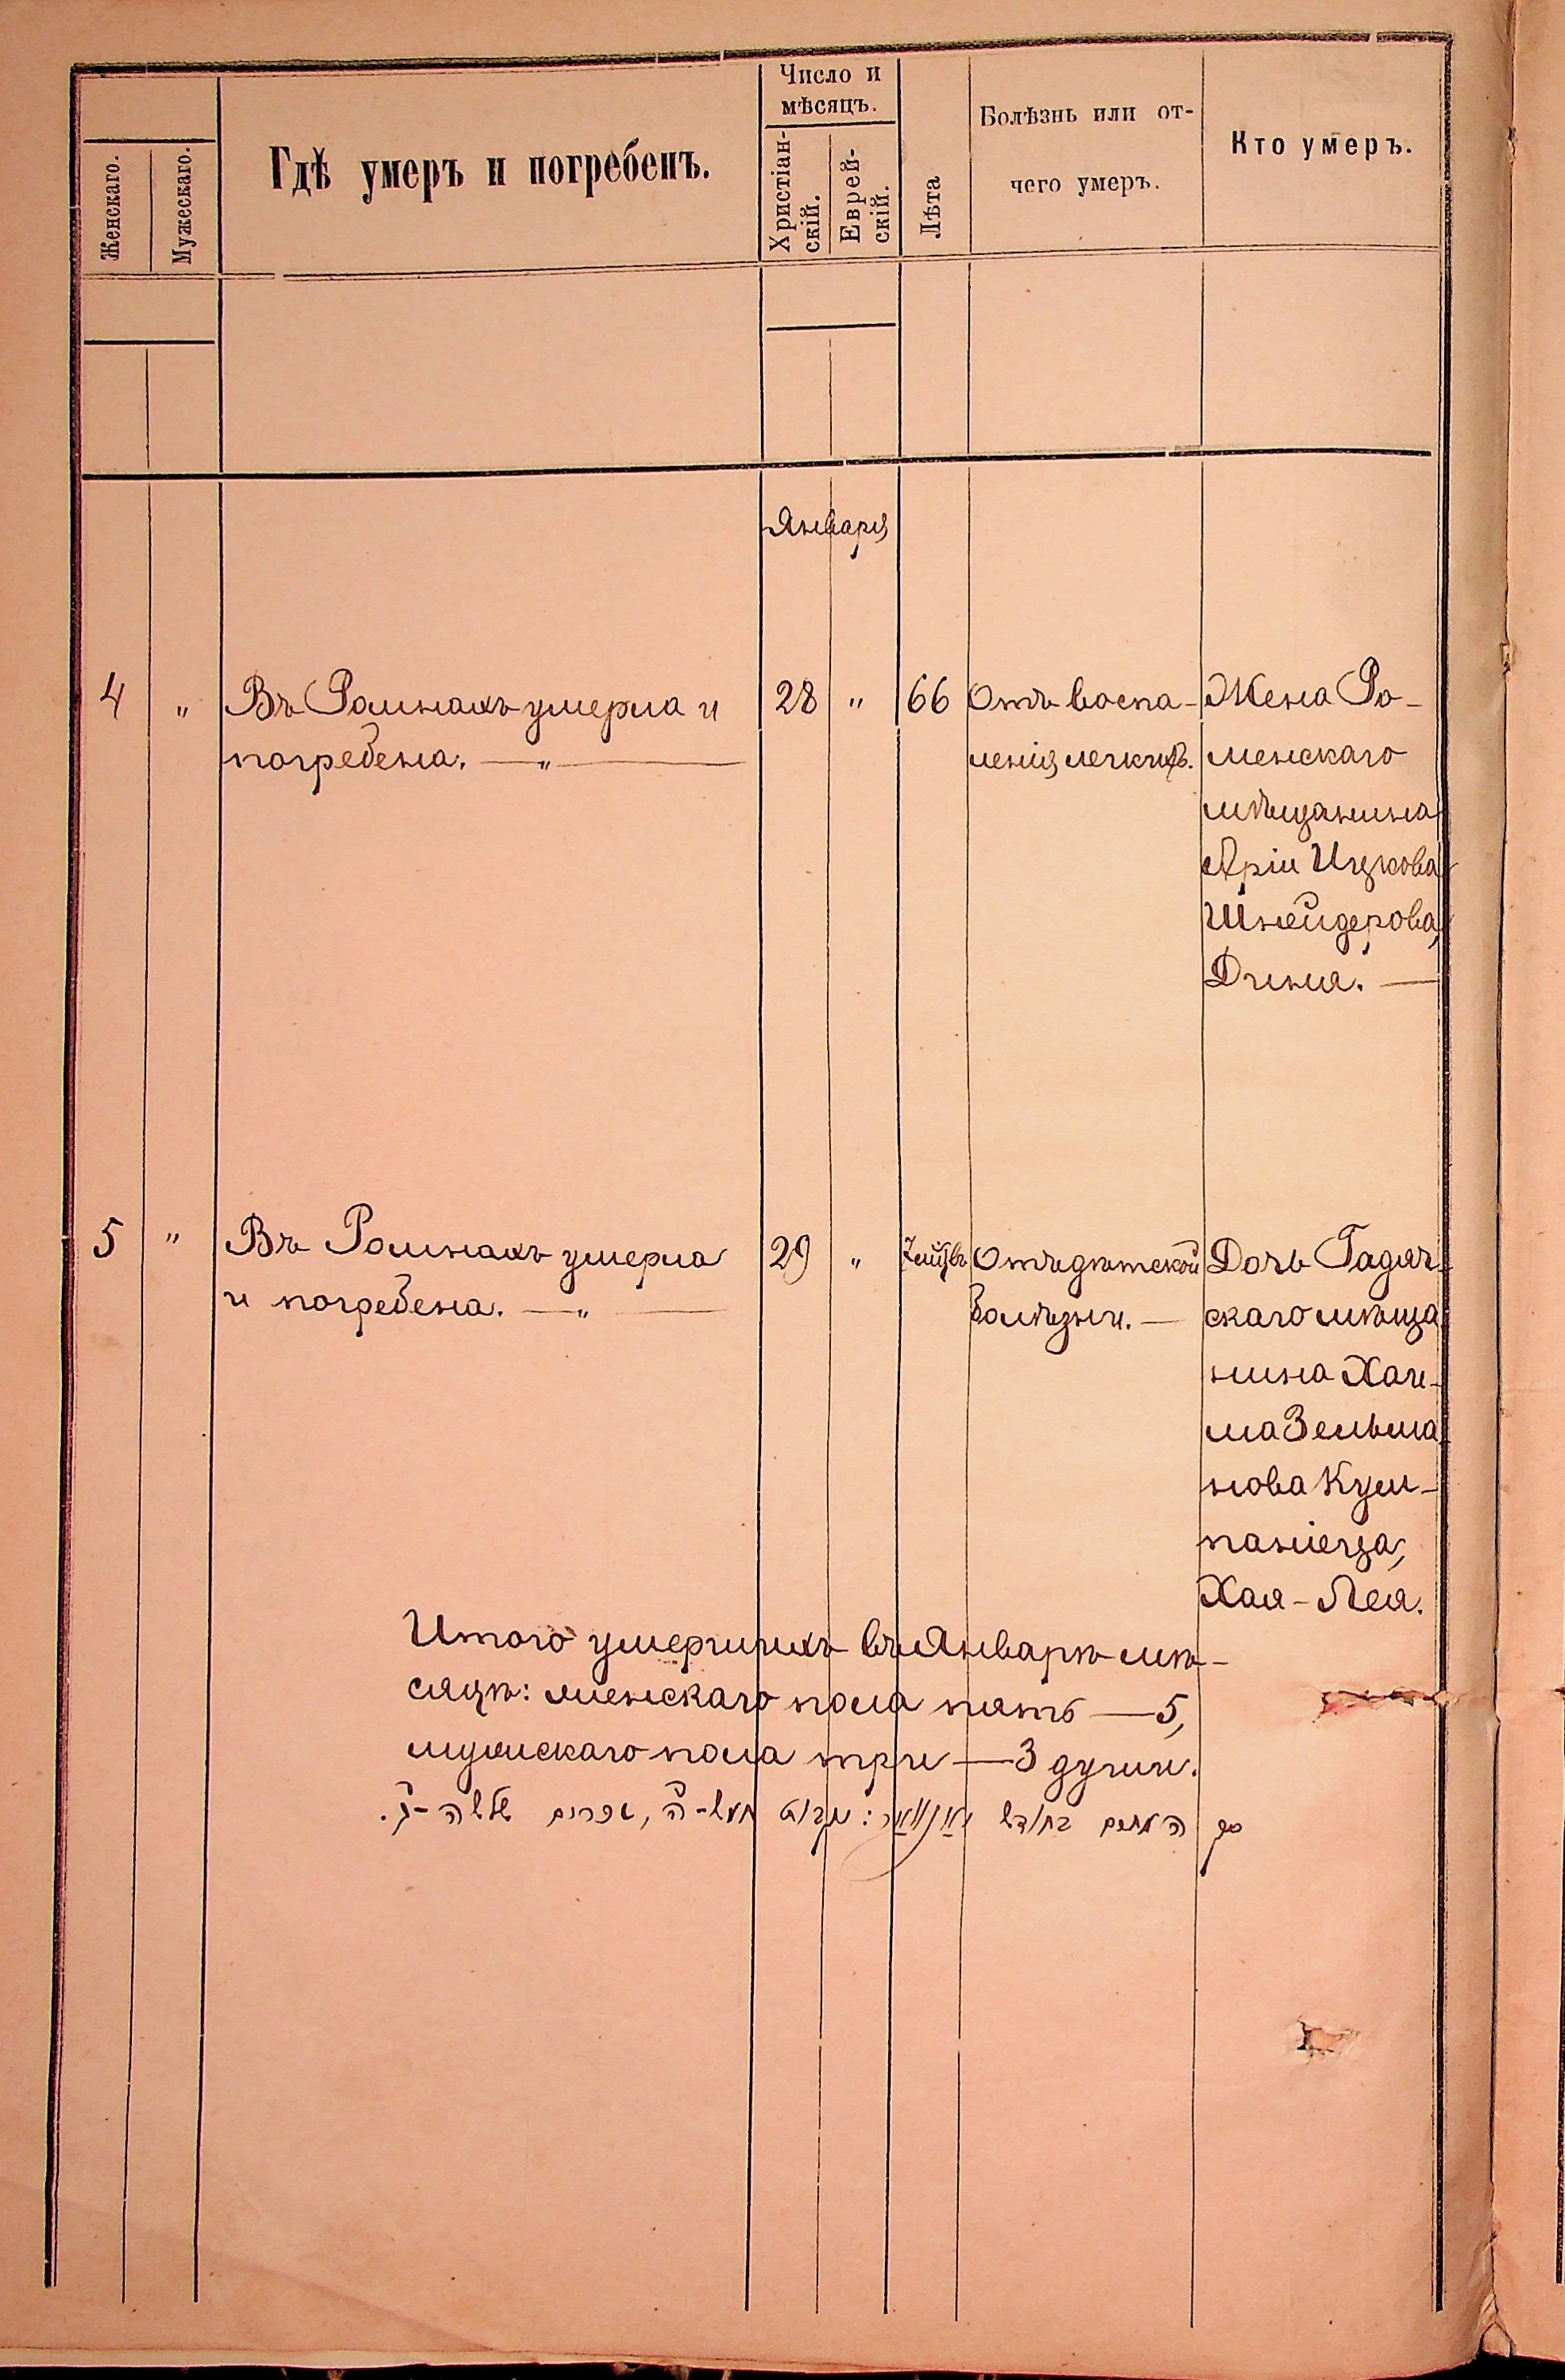 Число и
мѣсяцъ.
Женскаго.
Мужескаго.
Гдѣ умеръ и погребенъ.
Христіан-
скій.
Еврей-
скій.
Лѣта
Болѣзнь или от-
чего умеръ.
Кто умеръ.
Января
4 " Въ Ромнахъ умерла и
погребена. — " —
28 " 66
Отъ воспа-
ленія легкихъ.
Жена Ро-
менскаго
мѣщанина
Аріи Ицкова
Шнейдерова,
Дыня. —
5 " Въ Ромнахъ умерла
и погребена. — " —
29 " 7 мѣсцвъ
Отъ дѣтской
болѣзни. —
Дочь Гадяч-
скаго мѣща
нина Хаи-
ма Зельма-
нова Кум-
паніеца,
Хая-Лея.
Итого умершихъ въ Январѣ мѣ-
сяцѣ: женскаго пола пять — 5,
мужскаго пола три — 3 души.